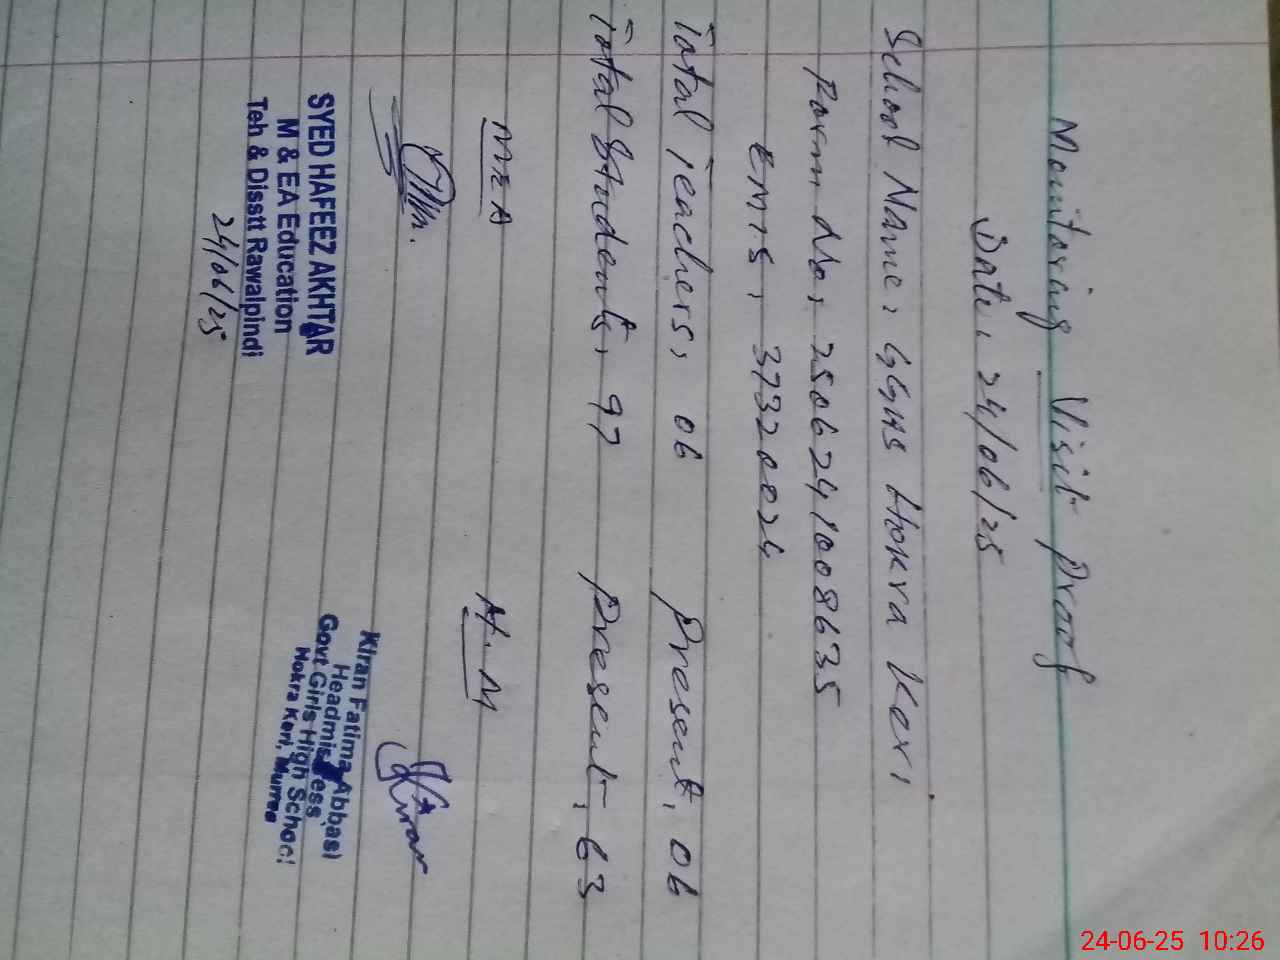 Monitoring Visit Proof
Date: 24/06/25
School Name: GGHS Hokra Keri
Form No: 2506241008635
EMIS: 37320024
Total Teachers: 06 Present: 06
Total Students: 97 Present: 63
MEA H.M
Kiran
SYED HAFEEZ AKHTAR
M & EA Education
Teh & Disstt Rawalpindi
24/06/25
Kiran Fatima Abbasi
Headmistress
Govt Girls High School
Hokra Keri, Murree
24-06-25 10:26